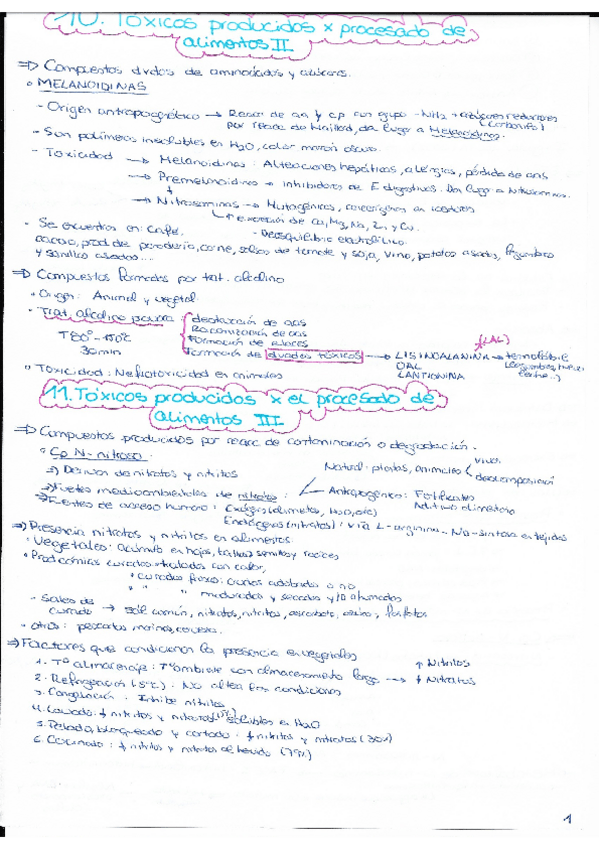 10. Tóxicos producidos x procesado de
alimentos II
=> Compuestos dvdos de aminoácidos y azúcares.
• MELANOIDINAS
- Origen antropogénico → Reacc de aa y cp con grupo -NH2 + azúcares reductores
(carbonilo)
por reacc de Maillard, da lugar a Melanoidinas.
- Son polímeros insolubles en H2O, color marrón oscuro.
- Toxicidad → Melanoidinas: Alteraciones hepáticas, alergias, pérdida de aas
→ Premelanoidinas → inhibidores de E digestivas. Dan lugar a Nitrosaminas.
→ Nitrosaminas → Mutagénicas, carcinógenas en roedores
↑ excreción de Ca, Mg, Na, Zn y Cu.
- Desequilibrio electrolítico.
- Se encuentran en: Café,
cacao, prod de panadería, carne, salsas de tomate y soja, vino, patatas asadas, legumbres
y semillas asadas....
=> Compuestos formados por trat. alcalino
• Origen: Animal y vegetal
• Trat. alcalino para: destrucción de aas
Racemización de aas
T 80º-110ºC Formación de enlaces
30 min Formación de dvados tóxicos → LISINOALANINA (LAL) → termoestable
OAL
LANTIONINA
• Toxicidad: Nefrotoxicidad en animales
11. Tóxicos producidos x el procesado de
alimentos III
=> Compuestos producidos por reacc de contaminación o degradación.
• Cp N-nitroso
=> Derivan de nitratos y nitritos
Natural: plantas, animales vivos
descomposición
=> Fuentes medioambientales de nitratos: Antropogénico: Fertilizantes
Aditivo alimentario
=> Fuentes de acceso humano: Exógenos (alimentos, H2O, etc)
Endógenas (nitratos): vía L-arginina - No-sintasa en tejidos
=> Presencia nitratos y nitritos en alimentos:
• Vegetales: acúmulo en hojas, tallos, semillas y raíces
• Prod cárnicos curados + tratados con calor,
" curados fresco: carnes adobadas o no
" " madurados y secados y/o ahumados
• Sales de
curado → Sal común, nitratos, nitritos, ascorbato, fosfatos
• Otros: pescados marinos, cerveza.
=> Factores que condicionan la presencia en vegetales
1. Tº almacenaje: Tº ambiente con almacenamiento largo → ↑ Nitritos
↓ Nitratos
2. Refrigeración (5ºC): No altera las condiciones
3. Congelación: Inhibe nitritos
4. Lavado: ↓ nitritos y nitratos solubles en H2O
5. Pelado, bloqueado y cortado: ↓ nitritos y nitratos (30%)
6. Cocinado: ↓ nitritos y nitratos al hervido (79%)
1